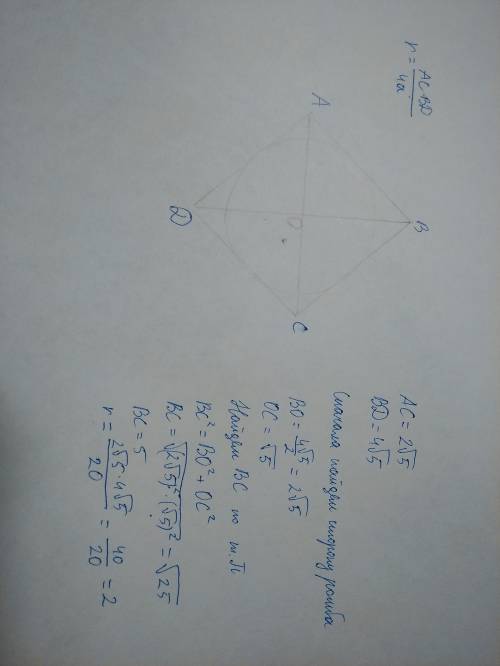 r = AC·BD / 4a
A
B
O
D
C
AC = 2√5
BD = 4√5
Сначала найдём сторону ромба
BO = 4√5 / 2 = 2√5
OC = √5
Найдём BC по т.П
BC² = BO² + OC²
BC = √(2√5)²·(√5)² = √25
BC = 5
r = 2√5·4√5 / 20 = 40 / 20 = 2